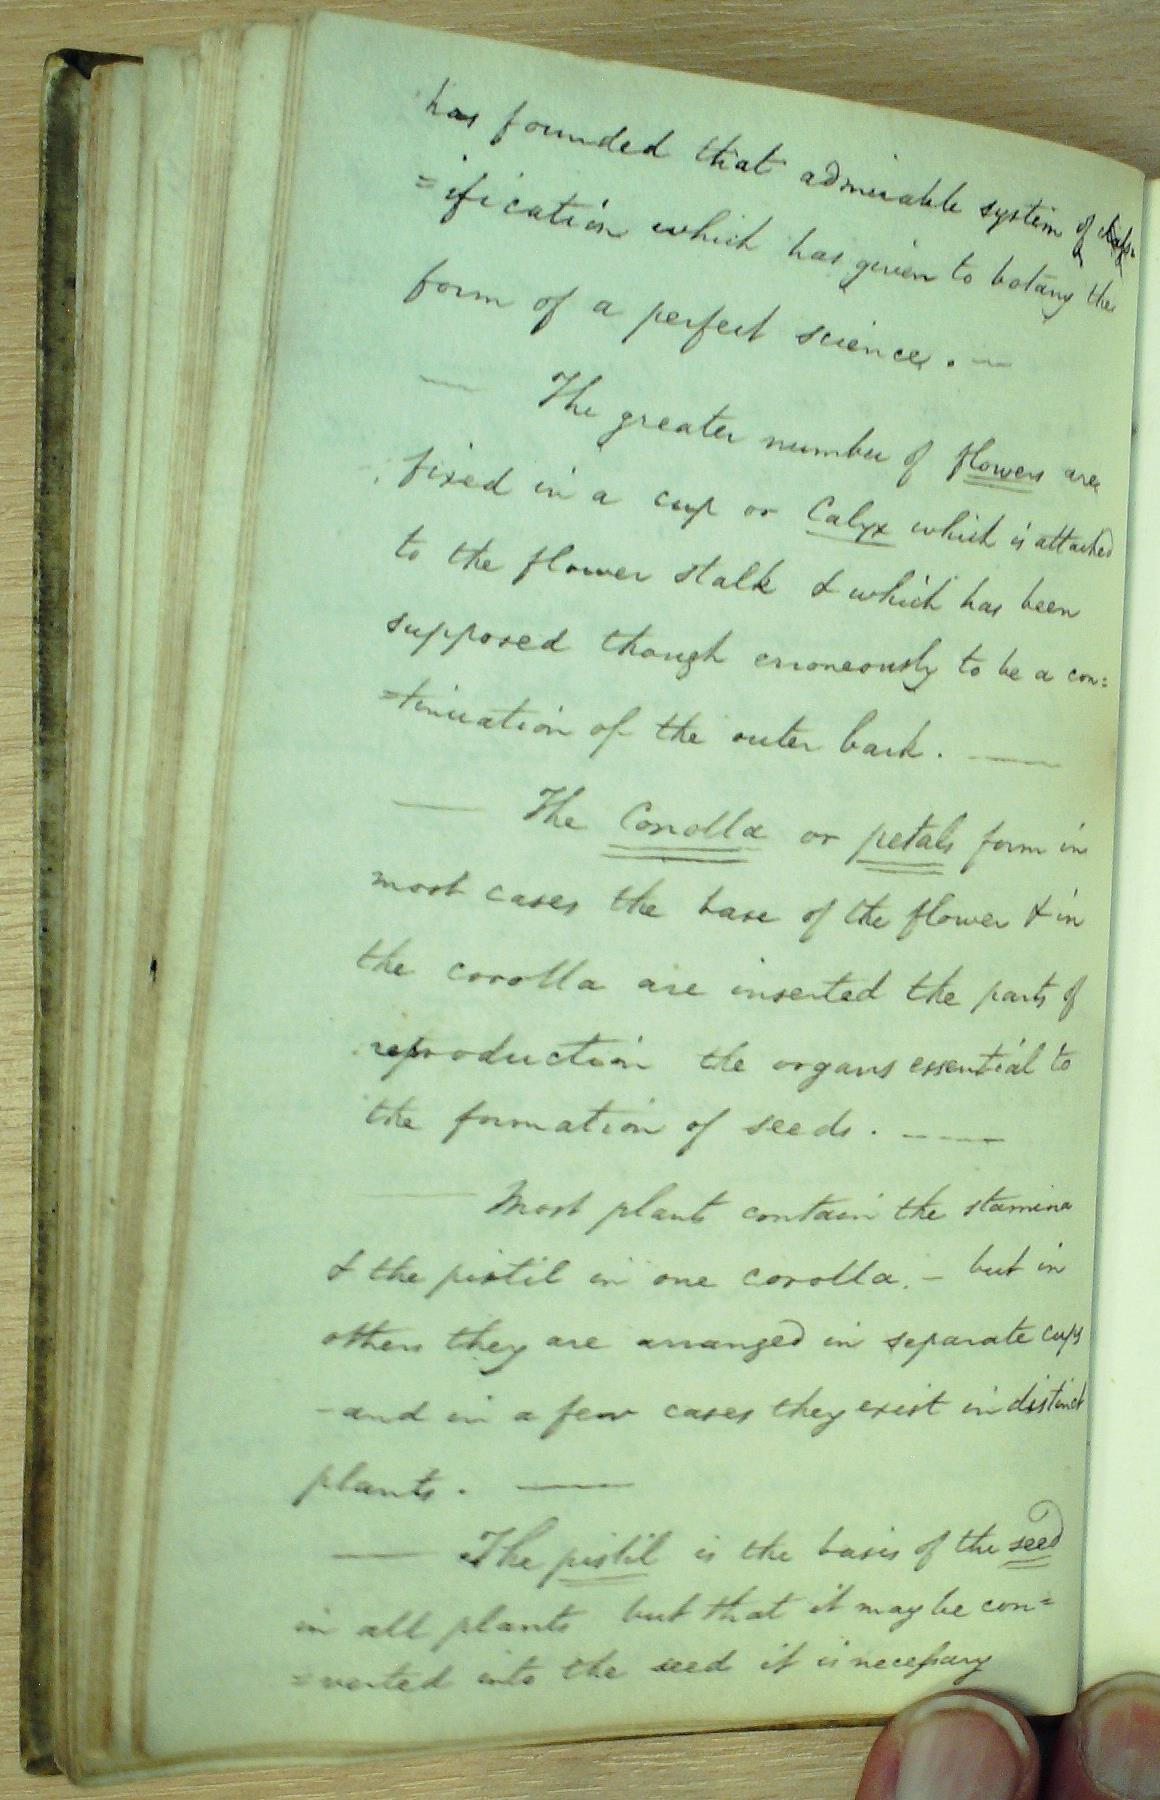 has founded that admirable system of class=
=ification which has given to botany the
form of a perfect science. —
— The greater number of flowers are
fixed in a cup or Calyx which is attached
to the flower stalk & which has been
supposed though erroneously to be a con=
=tinuation of the outer bark. —
— The Corolla or petals form in
most cases the base of the flower & in
the corolla are inserted the parts of
reproduction the organs essential to
the formation of seeds. —
— Most plants contain the stamina
& the pistil in one corolla. – but in
others they are arranged in separate cups
– and in a few cases they exist in distinct
plants. —
— The pistil is the basis of the seed
in all plants but that it may be con=
=verted into the seed it is necessary